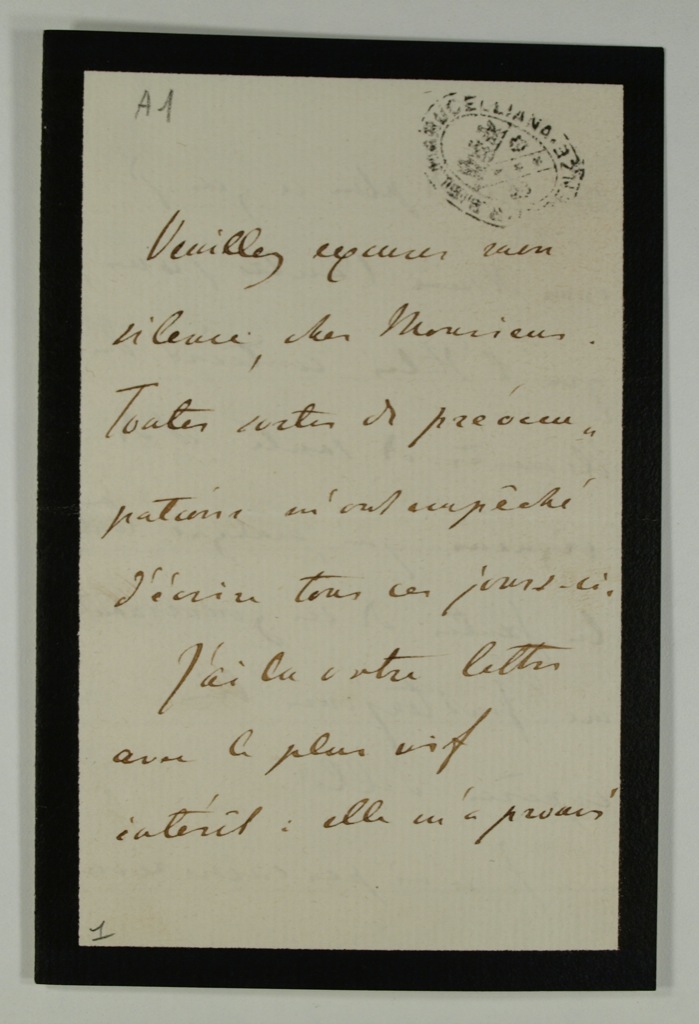 A1
MARUCELLIANA FIRENZE
Veuillez excuser mon
silence, cher Monsieur.
Toutes sortes de préoccu„
pations m'ont empêché
d'écrire tous ces jours-ci.
J'ai lu votre lettre
avec le plus vif
intérêt : elle m'a prouvé
1